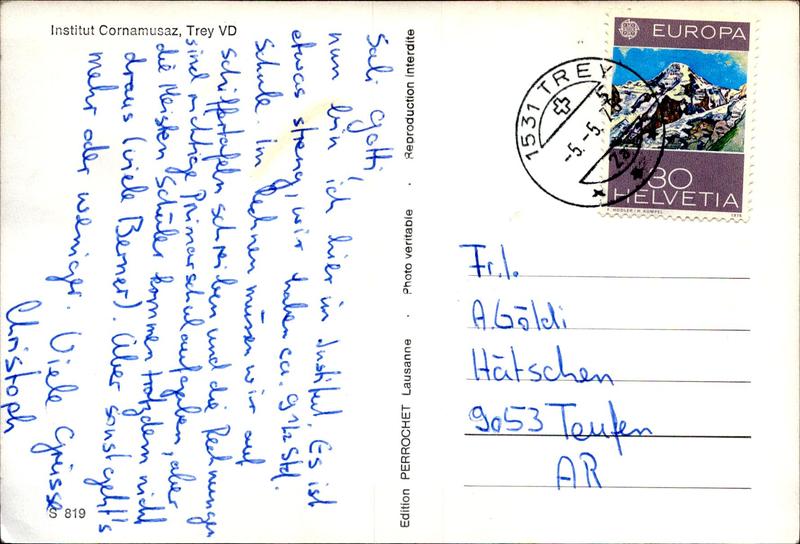 Institut Cornamusaz, Trey VD
Sali Gotti,
nun bin ich hier im Institut. Es ist
etwas streng, wir haben ca. 9 1/2 Std.
Schule. Im Rechnen müssen wir auf
schiffertafeln schreiben und die Rechnungen
sind richtige Primarschulaufgaben, aber
die Meisten Schüler kommen trotzdem nicht
draus (viele Berner). Aber sonst geht's
mehr oder weniger. Viele Grüsse
Christoph
S 819
Edition PERROCHET Lausanne · Photo véritable · Reproduction interdite
EUROPA
80
HELVETIA
F. HODLER/H. KÜMPEL 1975
1531 TREY
-5.-5.
Frl.
A. Göldi
Hätschen
9053 Teufen
AR